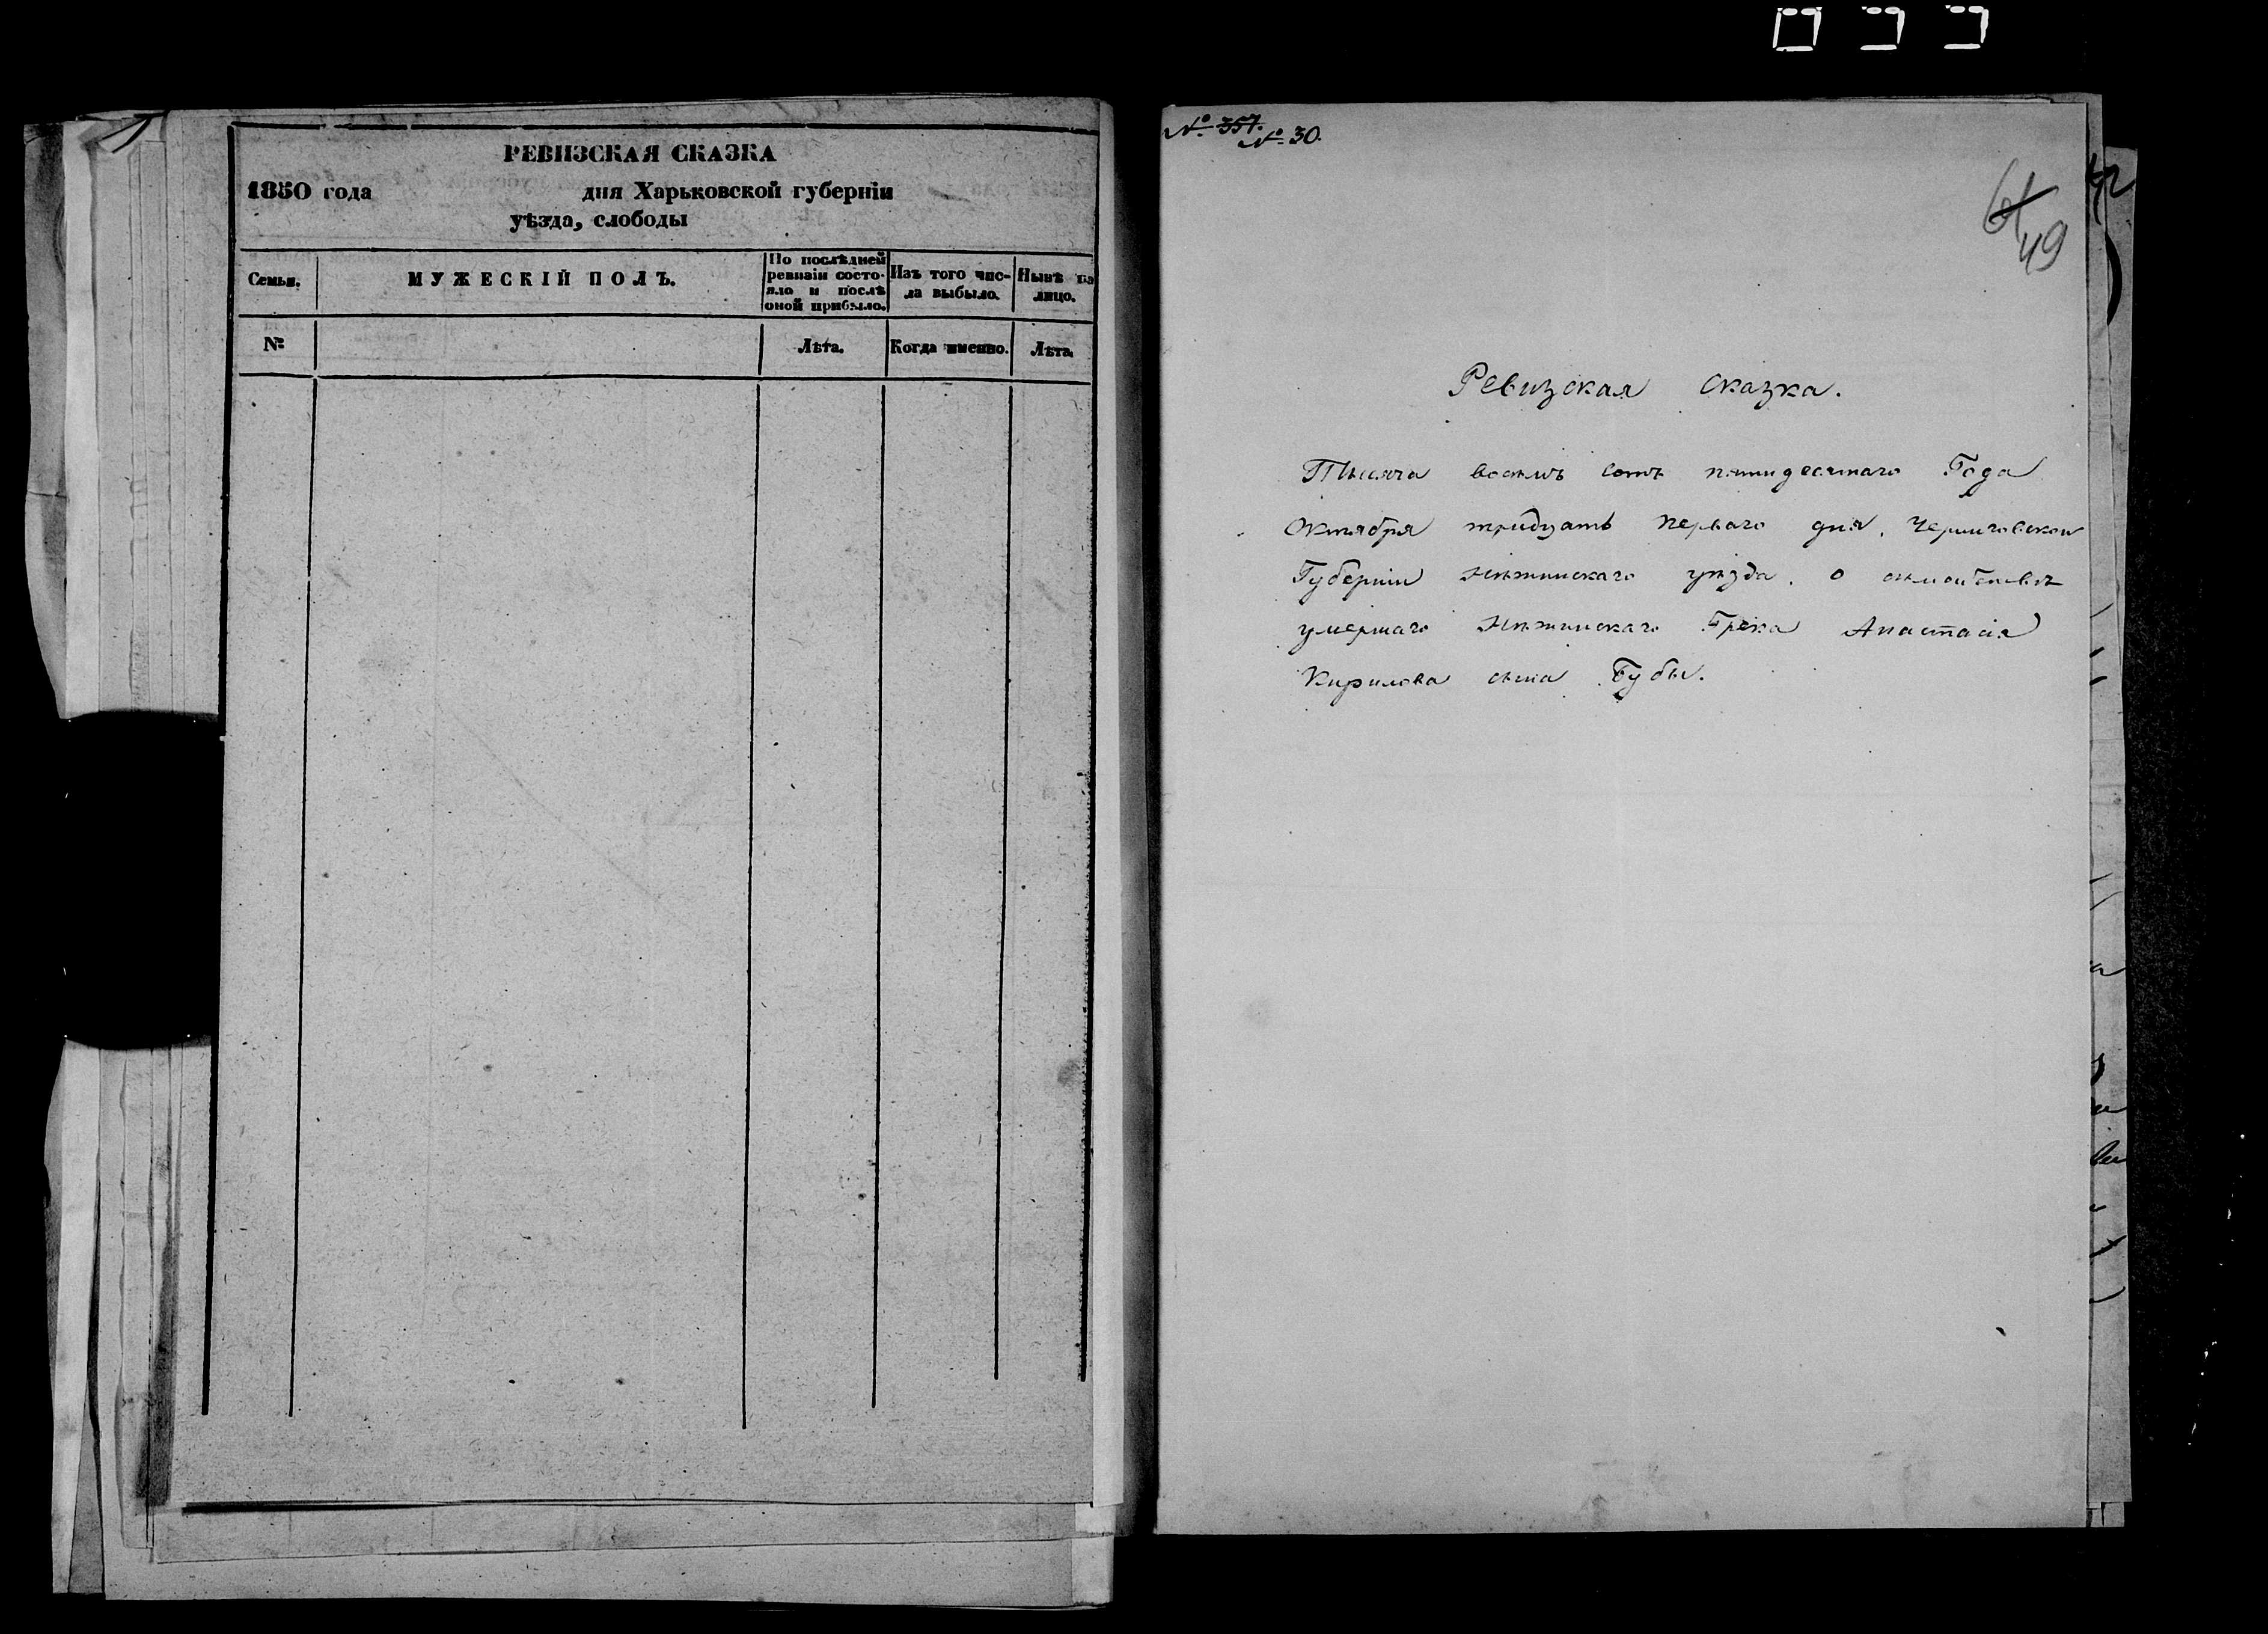 РЕВИЗСКАЯ СКАЗКА
1850 года дня Харьковской губерніи
уѣзда, слободы
Семьи.
МУЖЕСКІЙ ПОЛЪ.
По послѣдней
ревизіи состо-
яло и послѣ
оной прибыло.
Изъ того чис-
ла выбыло.
Нынѣ на
лицо.
№
Лѣта.
Когда именно.
Лѣта.
№ 357.
№ 30.
61
49
Ревизская сказка.
Тысяча восемъ сотъ пятидесятаго Года
Октября тридцать перваго дня. Черниговской
Губерніи Нѣжинскаго уѣзда. о
умершаго Нѣжинскаго Грека Анастасія
Кирилова сына Бубы.